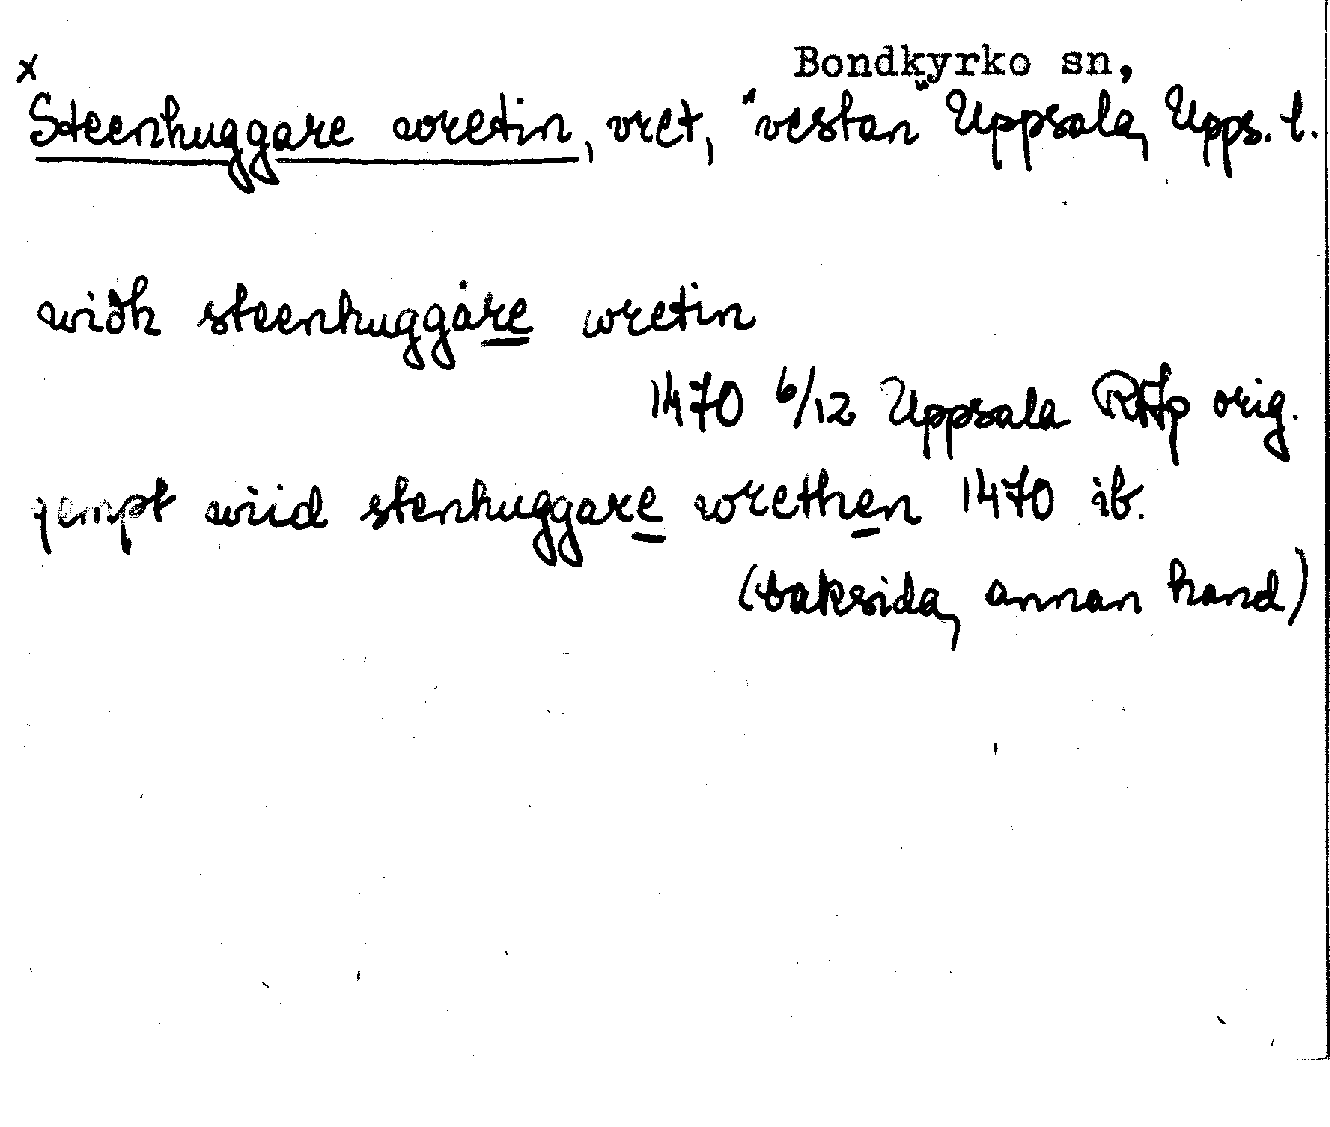 x
Bondkyrko sn,
Steenhuggare wretin, vret, "vestan" Uppsala, Upps. l.
widh steenhuggare wretin
1470 6/12 Uppsala RAp orig.
jempt wiid stenhuggare wrethen 1470 ib.
(baksida, annan hand)